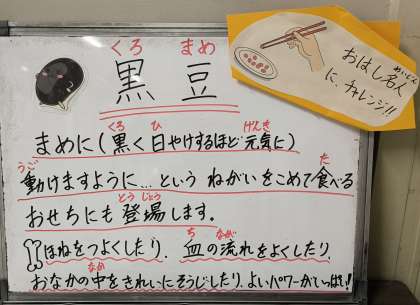 くろ まめ
黒 豆
おはし名人
めいじん
に、チャレンジ!!
くろ ひ げんき
まめに(黒く日やけするほど元気に)
うご た
動けますように…という ねがいをこめて食べる
とうじょう
おせちにも登場します。
ち なが
ほねをつよくしたり、血の流れをよくしたり、
なか
おなかの中をきれいにそうじしたり、よいパワーがいっぱい!